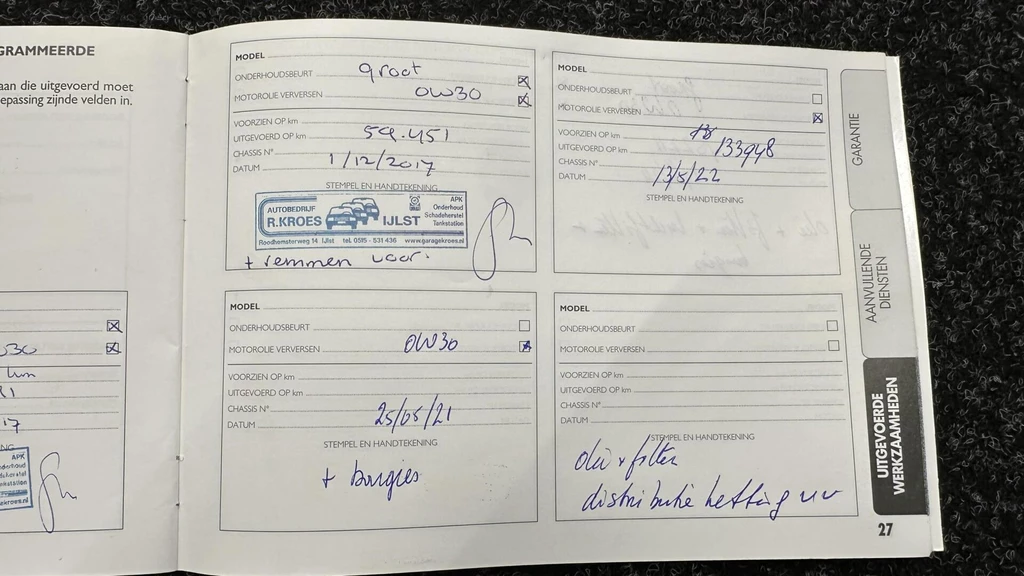 GRAMMEERDE
aan die uitgevoerd moet
epassing zijnde velden in.
MODEL
ONDERHOUDSBEURT groot
MOTOROLIE VERVERSEN 0W30
VOORZIEN OP km
UITGEVOERD OP km 59.451
CHASSIS N°
DATUM 1/12/2017
STEMPEL EN HANDTEKENING
AUTOBEDRIJF
R.KROES IJLST
APK
Onderhoud
Schadeherstel
Tankstation
Roodhemsterweg 14 IJlst tel. 0515 - 531 436 www.garagekroes.nl
+ remmen voor.
MODEL
ONDERHOUDSBEURT
MOTOROLIE VERVERSEN
VOORZIEN OP km
UITGEVOERD OP km 133948
CHASSIS N°
DATUM 13/5/22
STEMPEL EN HANDTEKENING
MODEL
ONDERHOUDSBEURT
MOTOROLIE VERVERSEN 0W30
VOORZIEN OP km
UITGEVOERD OP km
CHASSIS N°
DATUM 25/05/21
STEMPEL EN HANDTEKENING
+ bougies
MODEL
ONDERHOUDSBEURT
MOTOROLIE VERVERSEN
VOORZIEN OP km
UITGEVOERD OP km
CHASSIS N°
DATUM
STEMPEL EN HANDTEKENING
olie + filter
distributie ketting
GARANTIE
AANVULLENDE
DIENSTEN
UITGEVOERDE
WERKZAAMHEDEN
27